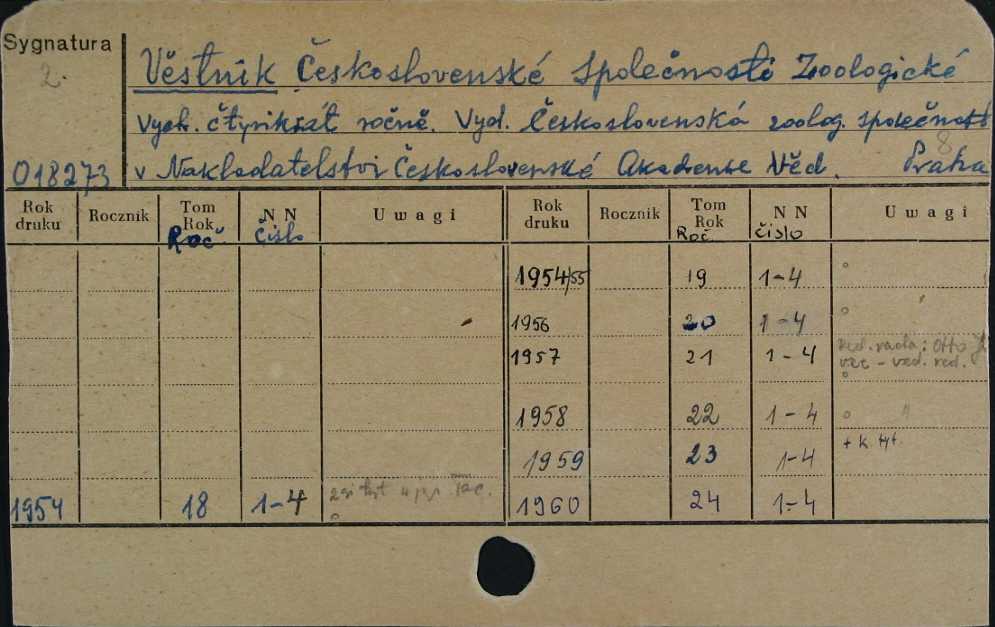 Sygnatura
2.
018273
Věstnik Československé Společnosti Zoologické
Vych. čtyrikrát ročně. Vyd. Československá zoolog. společnost
v Nakladatelstvi Československé Akademie Věd. Praha
8
Rok druku Rocznik Tom Rok N N Uwagi Rok druku Rocznik Tom Rok N N Uwagi
Roč čislo Roč. čislo
1954/55 19 1-4 °
1956 20 1-4 °
1957 21 1-4 red. rada: Otto
- ved. red.
°
1958 22 1-4 ° "
1959 23 1-4 + k. tyt.
1954 18 1-4 ° 1960 24 1-4